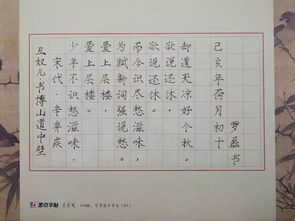 丑奴儿书博山道中壁
宋代·辛弃疾
少年不识愁滋味，
爱上层楼。
爱上层楼。
为赋新词强说愁。
而今识尽愁滋味，
欲说还休。
欲说还休。
却道天凉好个秋。
己亥年荷月初十
罗 书
墨点字帖